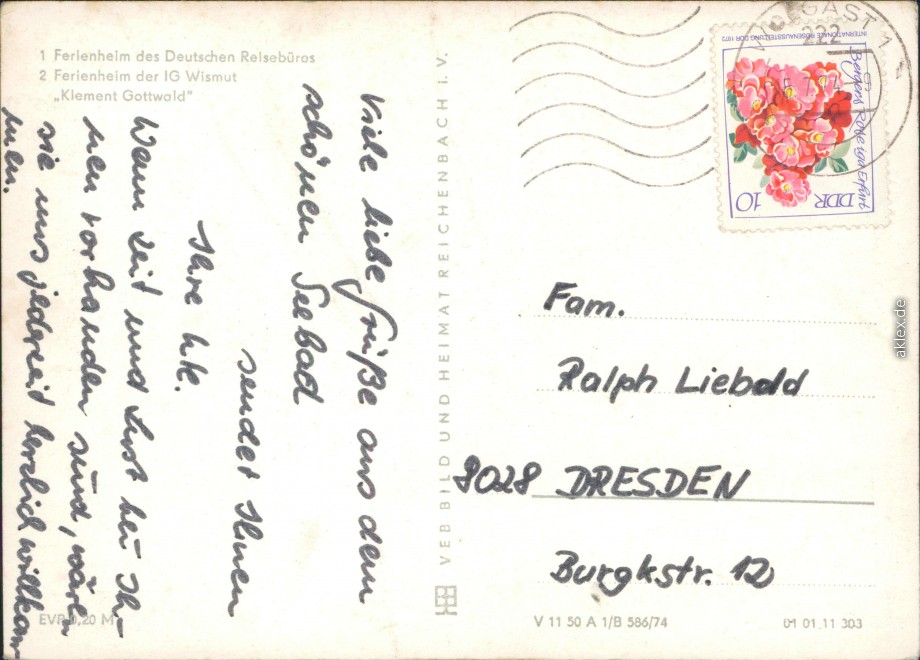 1 Ferienheim des Deutschen Reisebüros
2 Ferienheim der IG Wismut
„Klement Gottwald"
Viele liebe Grüße aus dem
schönen Seebad
sendet Ihnen
Ihre
Wenn Zeit und Lust bei Ih-
nen vorhanden sind, wären
sie uns jederzeit herzlich willkom-
men.
EVP 0,20 M
VEB BILD UND HEIMAT REICHENBACH I. V.
GAST 1
222
INTERNATIONALE ROSENAUSSTELLUNG DDR 1972
Bergers Rose von Erfurt
DDR 10
Fam.
Ralph Liebold
8028 DRESDEN
Burgkstr. 12
V 11 50 A 1/B 586/74
01 01.11 303
akleX.de